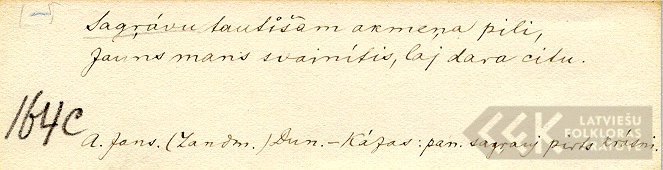 [—]
Sagrávu tautišam akmeņa pili,
Jauns mans svainítis, laj dara citu.
164c
A. Jans. (Landm.) Dun. – Kázas: pan. sagrauj pirts krásni.
LATVIEŠU
FOLKLORAS
KRĀTUVE